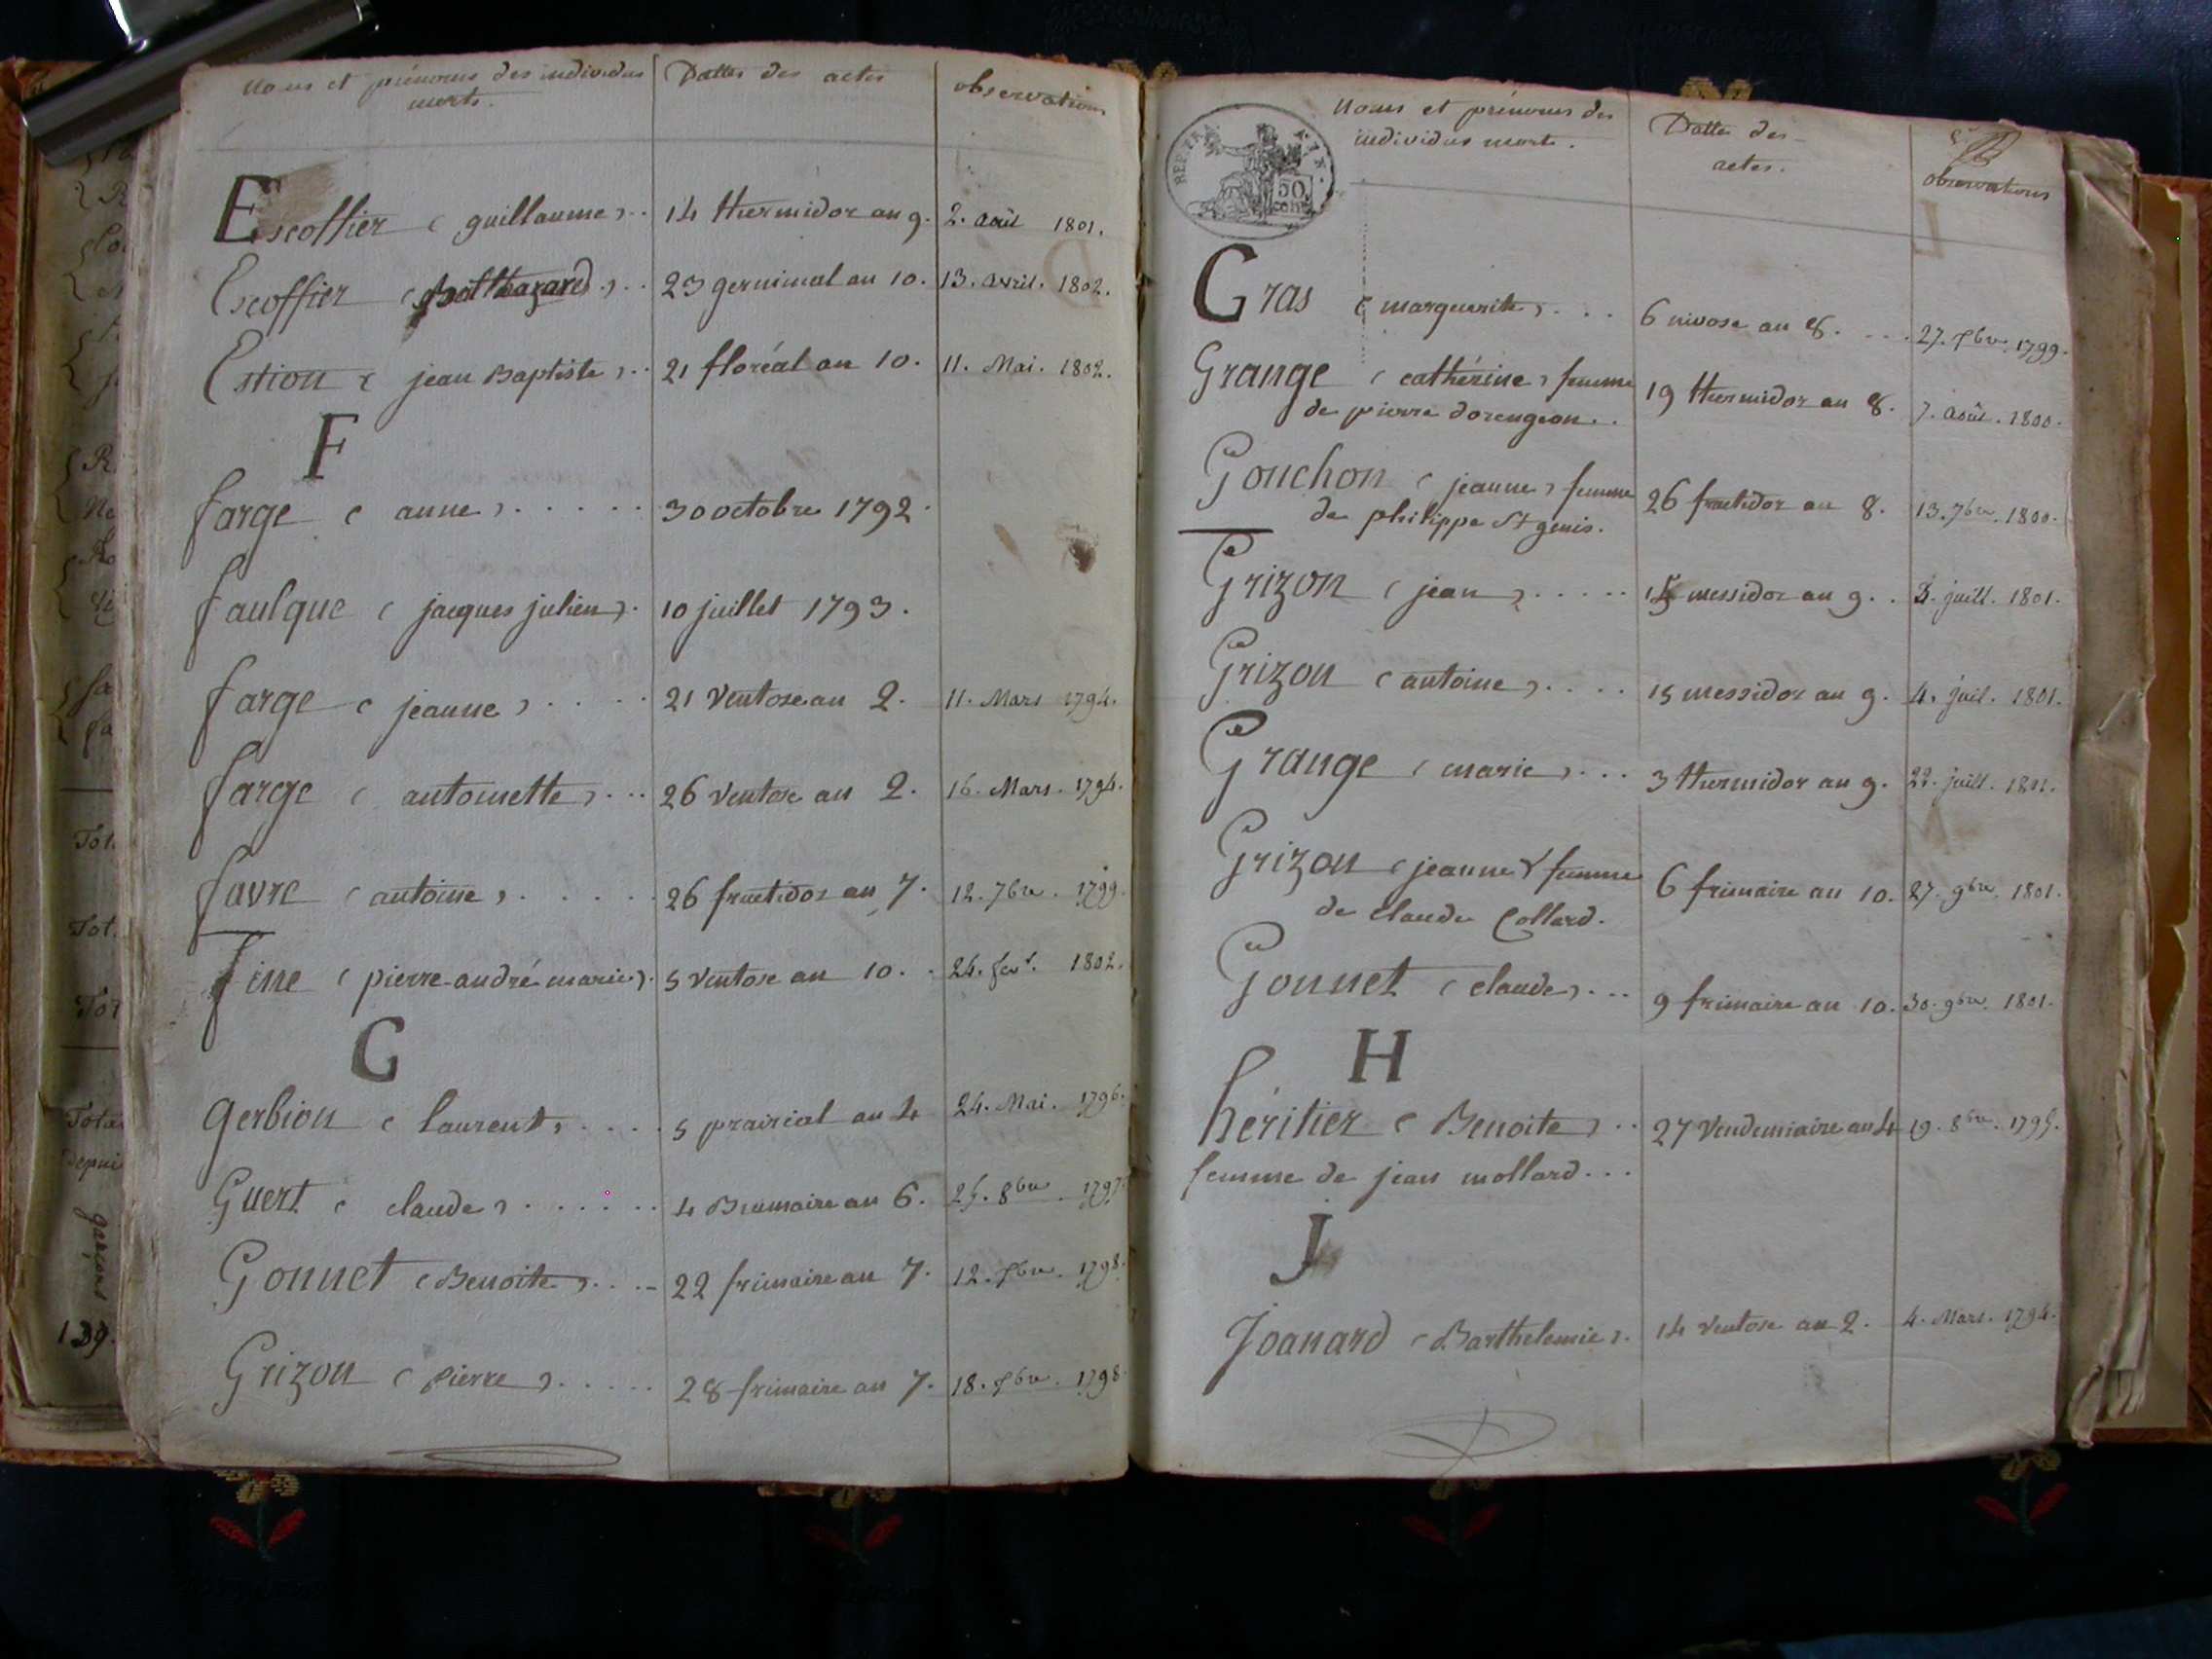 Noms et prénoms des individus
morts.
Dattes des actes
observations
Escoffier (guillaume) .. 14 thermidor an 9. 2. août 1801.
Escoffier (Balthazard) .. 23 germinal an 10. 13. avril. 1802.
Estion (jean Baptiste) .. 21 floréal an 10. 11. Mai. 1802.
F
farge (anne) ..... 30 octobre 1792.
faulque (jacques julien). 10 juillet 1793.
farge (jeanne) .... 21 Ventose an 2. 11. Mars 1794.
farge (antoinette) ... 26 ventose an 2. 16. Mars. 1794.
favre (antoine) ..... 26 fructidor an 7. 12. 7bre. 1799.
fine (pierre-andré marie). 5 Ventose an 10. . 24. fevr. 1802.
G
gerbion (laurent) .... 5 prairial an 4 24. Mai. 1796.
Guert (claude) ...... 4 Brumaire an 6. 25. 8bre. 1797.
Gonnet (Benoite) .... 22 frimaire an 7. 12. Xbre. 1798.
Grizon (pierre) ..... 28 frimaire an 7. 18. Xbre. 1798.
Noms et prénoms des
individus morts.
Dattes des
actes.
observations
REP. FRA.
50
cent
Gras (marguerite) .... 6 nivose an 8. ... 27. Xbre. 1799.
Grange (cathérine) femme 19 thermidor an 8. 7. août. 1800.
de pierre dorengeon..
Gouchon (jeanne) femme 26 fructidor an 8. 13. 7bre. 1800.
de philippe St genis.
Grizon (jean) ..... messidor an 9. . juill. 1801.
Grizon (antoine) .... 15 messidor an 9. 4. juil. 1801.
Grange (marie) ... 3 thermidor an 9. 22. juill. 1801.
Grizon (jeanne) femme 6 frimaire an 10. 27. 9bre. 1801.
de claude Collard.
Gonnet (claude) ... 9 frimaire an 10. 30. 9bre. 1801.
H
héritier (Benoite) .. 27 Vendemiaire an 4 19. 8bre. 1795.
femme de jean mollard...
J
Joanard (Barthelemie). 14 Ventose an 2. 4. Mars. 1794.
Tot.
Tot.
Tot
Tota
depui
garçons
139.